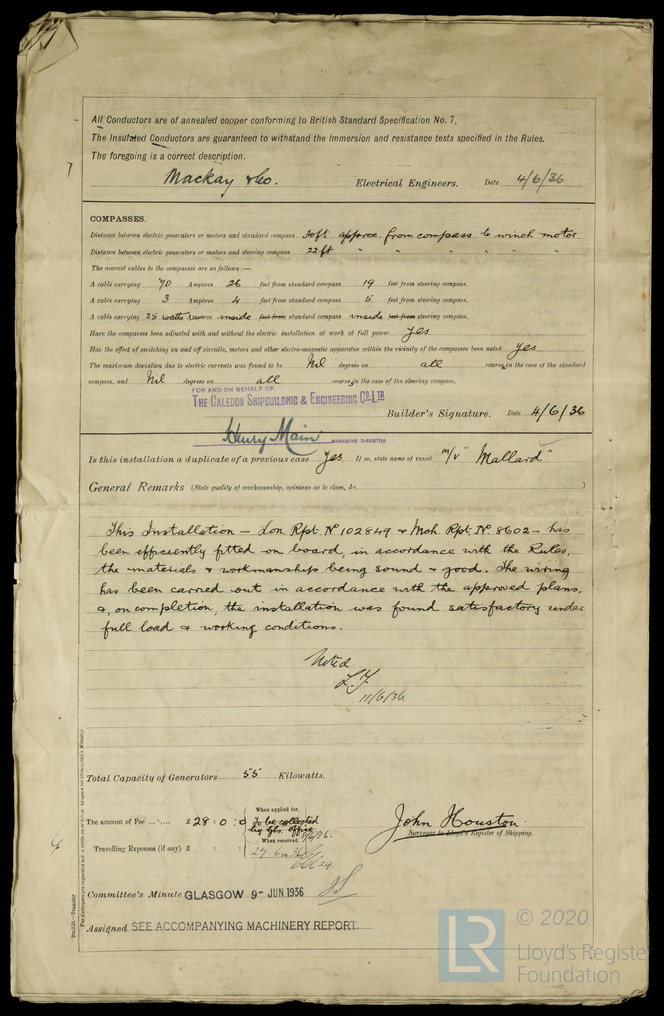 All Conductors are of annealed copper conforming to British Standard Specification No. 7.
The Insulated Conductors are guaranteed to withstand the Immersion and resistance tests specified in the Rules.
The foregoing is a correct description.
7
Mackay & Co. Electrical Engineers. Date 4/6/36
COMPASSES.
Distance between electric generators or motors and standard compass 30ft approx. from compass to winch motor.
Distance between electric generators or motors and steering compass 22ft " " " " " "
The nearest cables to the compasses are as follows:—
A cable carrying 70 Ampères 26 feet from standard compass 19 feet from steering compass.
A cable carrying 3 Ampères 4 feet from standard compass 5 feet from steering compass.
A cable carrying 25 watts Ampères inside feet from standard compass inside feet from steering compass.
Have the compasses been adjusted with and without the electric installation at work at full power yes
Has the effect of switching on and off circuits, motors and other electro-magnetic apparatus within the vicinity of the compasses been noted yes
The maximum deviation due to electric currents was found to be Nil degrees on all course in the case of the standard
compass, and Nil degrees on all course in the case of the steering compass.
FOR AND ON BEHALF OF
THE CALEDON SHIPBUILDING & ENGINEERING CO. LTD
Builder's Signature. Date 4/6/36
Henry Main MANAGING DIRECTOR
Is this installation a duplicate of a previous case yes If so, state name of vessel m/v "Mallard"
General Remarks (State quality of workmanship, opinions as to class, &c. )
This Installation — Lon. Rpt. No 102849 & Mch. Rpt. No. 8602 — has
been efficiently fitted on board, in accordance with the Rules,
the materials & workmanship being sound & good. The wiring
has been carried out in accordance with the approved plans,
&, on completion, the installation was found satisfactory under
full load & working conditions.
Noted
11/6/36
Total Capacity of Generators 55 Kilowatts.
The amount of Fee ... £ 28 : 0 : 0
When applied for,
To be collected
by Gls. Office
Travelling Expenses (if any) £ : :
When received,
John Houston
Surveyor to Lloyd's Register of Shipping.
Committee's Minute GLASGOW 9- JUN 1936
Assigned SEE ACCOMPANYING MACHINERY REPORT.
LR
© 2020
Lloyd's Register
Foundation